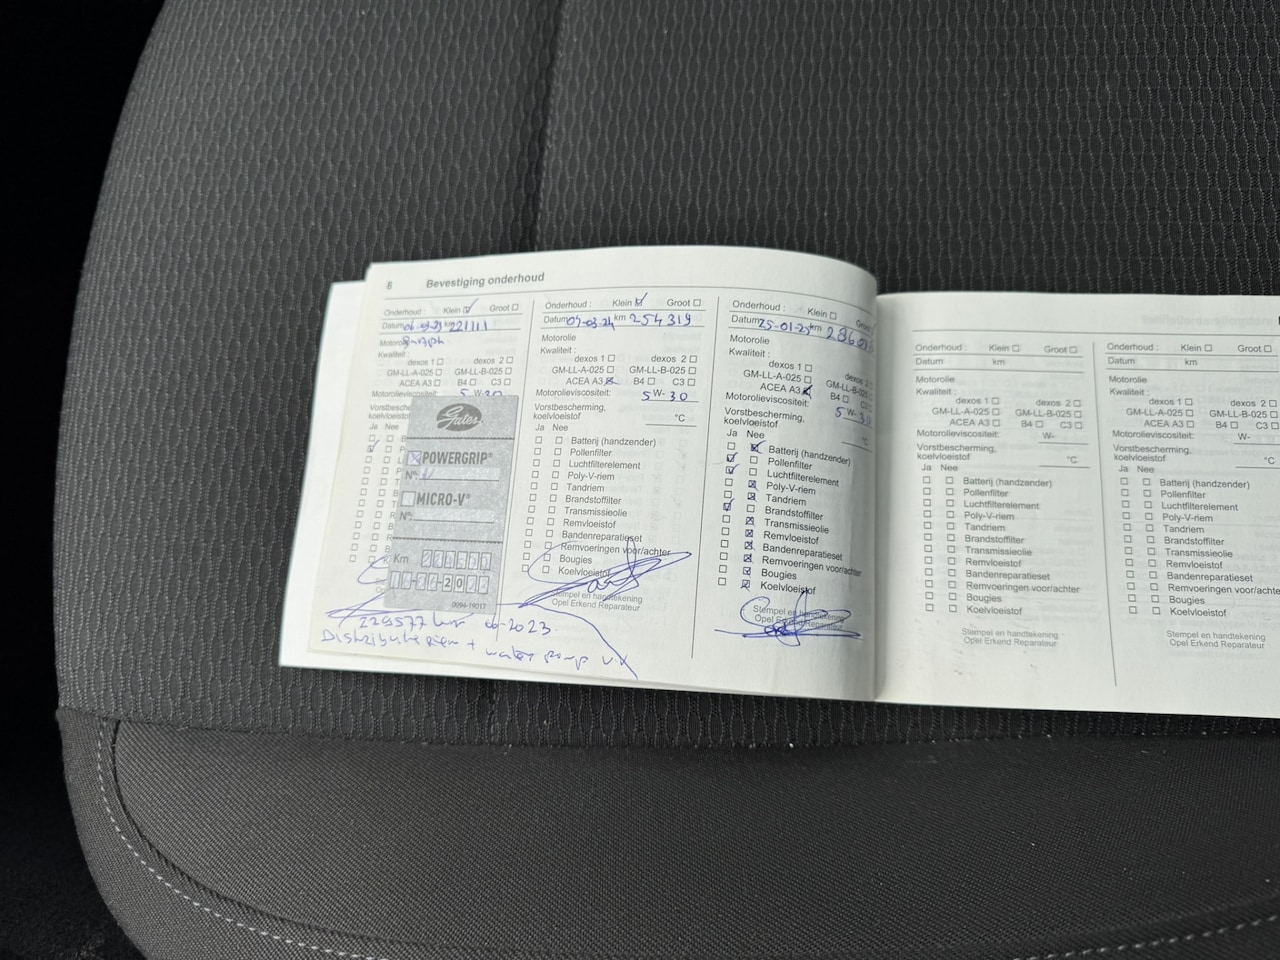 8 Bevestiging onderhoud
Onderhoud : Klein ☑ Groot ☐
Datum km 221111
dexos 1 ☐ dexos 2 ☐
Kwaliteit :
GM-LL-A-025 ☐ GM-LL-B-025 ☐
ACEA A3 ☐ B4 ☐ C3 ☐
Motorolieviscositeit: 5 W- 30
Ja Nee
Gates
☒ POWERGRIP®
N°
☐ MICRO-V®
N°
Km
0094-19017
229577 km 06-2023
Distributieriem + water pomp vv
Onderhoud : Klein ☑ Groot ☐
Datum 04-03-24 km 254319
Motorolie
Kwaliteit :
dexos 1 ☐ dexos 2 ☐
GM-LL-A-025 ☐ GM-LL-B-025 ☐
ACEA A3 ☒ B4 ☐ C3 ☐
Motorolieviscositeit: 5 W- 30
Vorstbescherming,
koelvloeistof °C
Ja Nee
☐ ☐ Batterij (handzender)
☐ ☐ Pollenfilter
☐ ☐ Luchtfilterelement
☐ ☐ Poly-V-riem
☐ ☐ Tandriem
☐ ☐ Brandstoffilter
☐ ☐ Transmissieolie
☐ ☐ Remvloeistof
☐ ☐ Bandenreparatieset
☐ ☐ Remvoeringen voor/achter
☐ ☐ Bougies
☐ ☐ Koelvloeistof
Stempel en handtekening
Opel Erkend Reparateur
Onderhoud : Klein ☐
Datum 25-01-25 km
Motorolie
Kwaliteit :
dexos 1 ☐ dexos
GM-LL-A-025 ☐ GM-LL-B-025
ACEA A3 ☒ B4 ☐
Motorolieviscositeit: 5 W-
Vorstbescherming,
koelvloeistof
Ja Nee
☐ ☒ Batterij (handzender)
☑ ☐ Pollenfilter
☑ ☐ Luchtfilterelement
☐ ☒ Poly-V-riem
☐ ☒ Tandriem
☑ ☐ Brandstoffilter
☐ ☒ Transmissieolie
☐ ☒ Remvloeistof
☐ ☒ Bandenreparatieset
☐ ☒ Remvoeringen voor/achter
☐ ☒ Bougies
☐ ☒ Koelvloeistof
Stempel en handtekening
Opel Erkend Reparateur
Onderhoud : Klein ☐ Groot ☐
Datum km
Motorolie
Kwaliteit :
dexos 1 ☐ dexos 2 ☐
GM-LL-A-025 ☐ GM-LL-B-025 ☐
ACEA A3 ☐ B4 ☐ C3 ☐
Motorolieviscositeit: W-
Vorstbescherming,
koelvloeistof °C
Ja Nee
☐ ☐ Batterij (handzender)
☐ ☐ Pollenfilter
☐ ☐ Luchtfilterelement
☐ ☐ Poly-V-riem
☐ ☐ Tandriem
☐ ☐ Brandstoffilter
☐ ☐ Transmissieolie
☐ ☐ Remvloeistof
☐ ☐ Bandenreparatieset
☐ ☐ Remvoeringen voor/achter
☐ ☐ Bougies
☐ ☐ Koelvloeistof
Stempel en handtekening
Opel Erkend Reparateur
Onderhoud : Klein ☐ Groot ☐
Datum km
Motorolie
Kwaliteit :
dexos 1 ☐ dexos 2
GM-LL-A-025 ☐ GM-LL-B-025
ACEA A3 ☐ B4 ☐ C3 ☐
Motorolieviscositeit: W-
Vorstbescherming,
koelvloeistof °C
Ja Nee
☐ ☐ Batterij (handzender)
☐ ☐ Pollenfilter
☐ ☐ Luchtfilterelement
☐ ☐ Poly-V-riem
☐ ☐ Tandriem
☐ ☐ Brandstoffilter
☐ ☐ Transmissieolie
☐ ☐ Remvloeistof
☐ ☐ Bandenreparatieset
☐ ☐ Remvoeringen voor/achte
☐ ☐ Bougies
☐ ☐ Koelvloeistof
Stempel en handtekening
Opel Erkend Reparateur